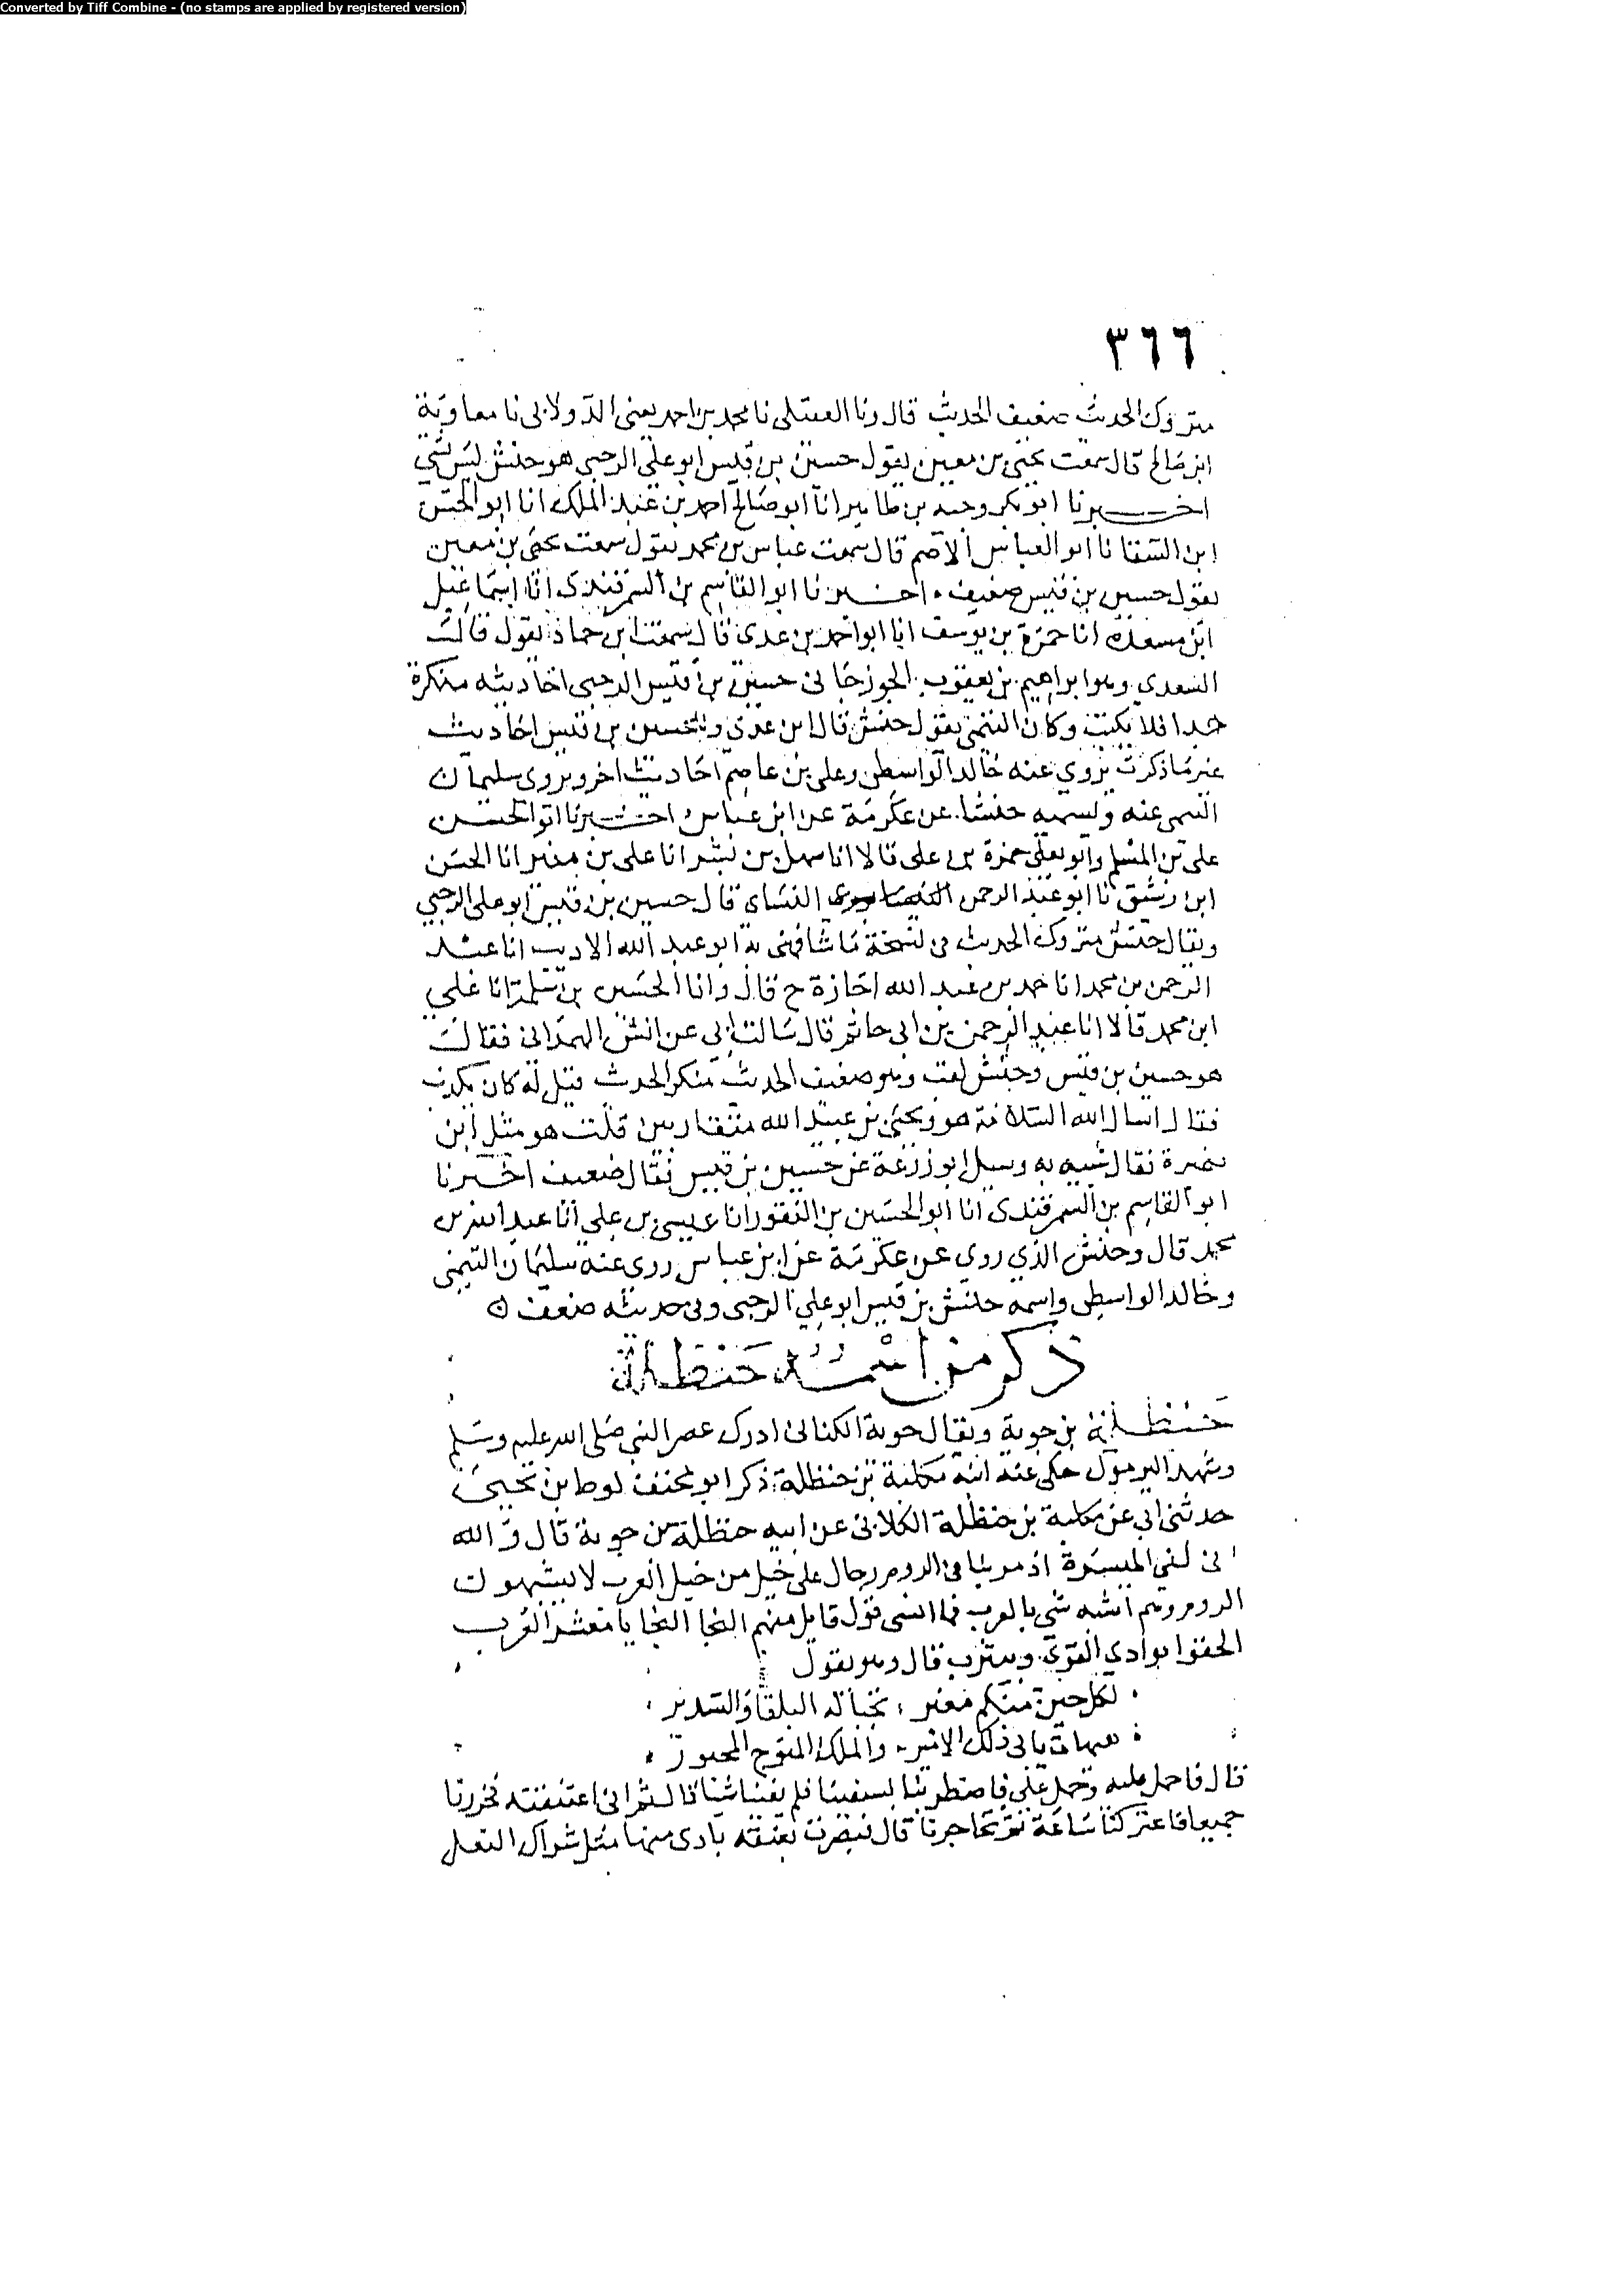 Converted by Tiff Combine - (no stamps are applied by registered version)
٣٦٦
متروك الحديث ضعيف الحديث قال ونا العقيلى نا محمد بن احمد يعنى الدولابى نا معاوية
ابن صالح قال سمعت يحيى بن معين يقول حسين بن قيس ابو على الرحبى هو حنش ليس بشى
اخبرنا ابو بكر وجيه بن طاهر انا ابو صالح احمد بن عبد الملك انا ابو الحسن
ابن السقا نا ابو العباس الاصم قال سمعت عباس بن محمد يقول سمعت يحيى بن معين
يقول حسين بن قيس ضعيف اخبرنا ابو القاسم بن السمرقندى انا اسماعيل
ابن مسعدة انا حمزة بن يوسف انا ابو احمد بن عدى قال سمعت ابن حماد يقول قال
السعدي وهو ابراهيم بن يعقوب الجوزجانى حسين بن قيس الرحبى احاديثه منكرة
جدا فلا يكتب وكان التيمى يقول حنش قال ابن عدى وللحسين بن قيس احاديث
غير ما ذكرت يروي عنه خالد الواسطى وعلى بن عاصم احاديث اخر ويروى سليمان
التيمى عنه ويسميه حنشا عن عكرمة عن ابن عباس اخبرنا ابو الحسن
على بن المسلم وابو يعلى حمزة بن على قالا انا سهل بن بشر انا على بن منير انا الحسن
ابن رشيق نا ابو عبد الرحمن النساى قال حسين بن قيس ابو على الرحبي
ويقال حنش متروك الحديث فى نسخة ما شافهنى به ابو عبد الله الاديب انا عبد
الرحمن بن محمد انا حمد بن عبد الله اجازة ح قال وانا الحسين بن سلمة انا علي
ابن محمد قالا انا عبد الرحمن بن ابى حاتم قال سالت ابى عن الهمدانى فقال
هو حسين بن قيس وحنش لقب وهو ضعيف الحديث منكر الحديث قيل له كان يكذب
فقال اسال الله السلامة هو ويحيى بن عبيد الله متقاربين قلت هو مثل ابن
ضميرة فقال شبيه به وسيل ابو زرعة عن حسين بن قيس فقال ضعيف اخبرنا
ابو القاسم بن السمرقندى انا ابو الحسين بن النقور انا عيسى بن علي انا عبد الله بن
محمد قال وحنش الذي روى عن عكرمة عن ابن عباس روى عنه سليمان التيمى
وخالد الواسطى واسمه حنش بن قيس ابو علي الرحبى وفى حديثه ضعف
ذكر من اسمه حنظلة
حنظلة بن جوية ويقال حوية الكنانى ادرك عصر النبي صلى الله عليه وسلم
وشهد اليرموك حكى عنه ابنه مكلبة بن حنظلة ذكر ابو مخنف لوط بن يحيى
حدثنى ابي عن مكلبة بن حنظلة الكلابى عن ابيه حنظلة بن جوية قال والله
انى لفي الميسرة اذ مر بنا فى الروم رجال على خيل من خيل العرب لا يشبهون
الروم وهم اشبه شي بالعرب فما انسى قول قايل منهم النجا النجا يا معشر العرب
الحقوا بوادي القرى ويثرب قال وهو يقول
لكل حين منكم مغير نحتاله البلقا والسدير
هيهات يابى ذلك الامير والملك المتوج المحبور
قال فاحمل عليه وحمل علي فاضطربنا بسيفينا فلم يغنيا شيا قال ثم انى اعتنقته فخررنا
جميعا فاعتركنا ساعة ثم تحاجزنا قال فبصرت بعنقه بادى منها مثل شراك النعل